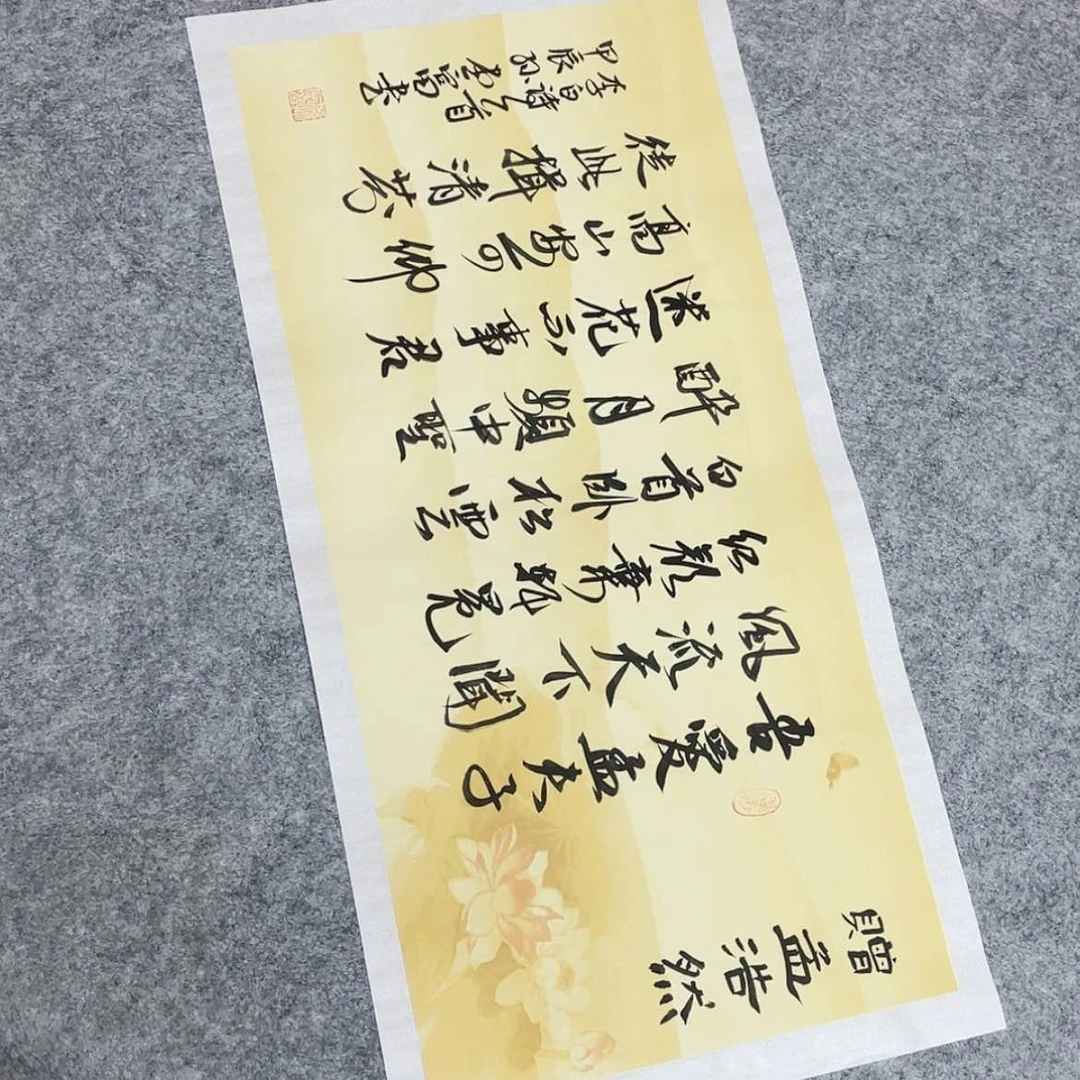 贈孟浩然
吾愛孟夫子
風流天下聞
紅顏棄軒冕
白首卧松雲
醉月頻中聖
迷花不事君
高山安可仰
徒此揖清芬
李白詩一首
甲辰 富書